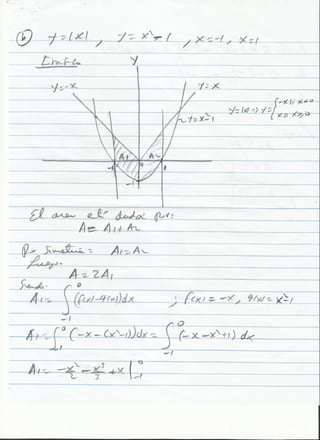 ⑥ y=|x| , y=x²-1 , x=-1, x=1
Grafica
y
y=-x
y=x
y=|x| => y= { -x si x<0
x si x≥0
y=x²-1
A1 A2
-1 1
-1
El area está dada por:
A= A1+A2
Por Simetria = A1=A2
Luego.
A=2A1
Siendo.
A1= ∫₋₁⁰ (f(x)-g(x))dx ; f(x)= -x, g(x)= x²-1
A1= ∫₋₁⁰ (-x-(x²-1))dx = ∫₋₁⁰ (-x-x²+1) dx
A1= -x²/2 - x³/3 +x |₋₁⁰